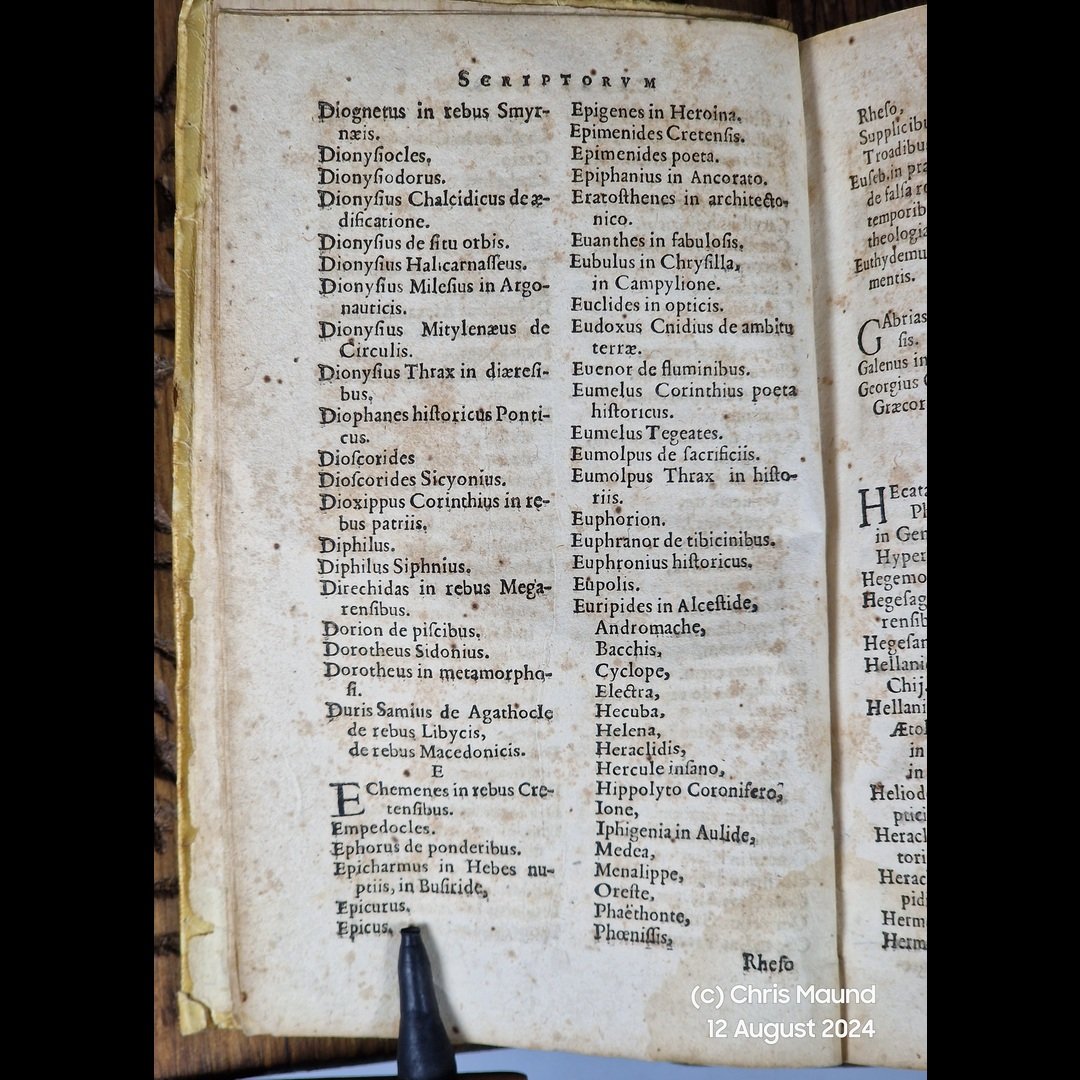 SCRIPTORVM
Diognetus in rebus Smyr-
næis.
Dionyſiocles,
Dionyſiodorus.
Dionyſius Chalcidicus de æ-
dificatione.
Dionyſius de ſitu orbis.
Dionyſius Halicarnaſſeus.
Dionyſius Mileſius in Argo-
nauticis.
Dionyſius Mitylenæus de
Circulis.
Dionyſius Thrax in diæreſi-
bus,
Diophanes hiſtoricus Ponti-
cus.
Dioſcorides
Dioſcorides Sicyonius.
Dioxippus Corinthius in re-
bus patriis,
Diphilus.
Diphilus Siphnius.
Direchidas in rebus Mega-
renſibus.
Dorion de piſcibus,
Dorotheus Sidonius.
Dorotheus in metamorpho-
ſi.
Duris Samius de Agathocle
de rebus Libycis,
de rebus Macedonicis.
E
EChemenes in rebus Cre-
tenſibus.
Empedocles.
Ephorus de ponderibus.
Epicharmus in Hebes nu-
ptiis, in Buſiride,
Epicurus,
Epicus,
Epigenes in Heroina,
Epimenides Cretenſis.
Epimenides poeta.
Epiphanius in Ancorato.
Eratoſthenes in architecto-
nico.
Euanthes in fabuloſis,
Eubulus in Chryſilla,
in Campylione.
Euclides in opticis.
Eudoxus Cnidius de ambitu
terræ.
Euenor de fluminibus.
Eumelus Corinthius poeta
hiſtoricus.
Eumelus Tegeates.
Eumolpus de ſacrificiis.
Eumolpus Thrax in hiſto-
riis.
Euphorion.
Euphranor de tibicinibus.
Euphronius hiſtoricus,
Eupolis.
Euripides in Alceſtide,
Andromache,
Bacchis,
Cyclope,
Electra,
Hecuba,
Helena,
Heraclidis,
Hercule inſano,
Hippolyto Coronifero,
Ione,
Iphigenia in Aulide,
Medea,
Menalippe,
Oreſte,
Phaëthonte,
Phœniſſis,
Rheſo
Rheſo,
Supplicibu
Troadibu
Euſeb. in pra
de falſa r
temporib
theologia
Euthydemu
mentis.
GAbrias
ſis.
Galenus in
Georgius
Græcor
HEcata
Ph
in Gen
Hyper
Hegemo
Hegeſag
renſib
Hegeſan
Hellani
Chij.
Hellani
Ætol
in
in
Heliod
ptici
Heracl
tori
Herac
pid
Herm
Herm
(c) Chris Maund
12 August 2024